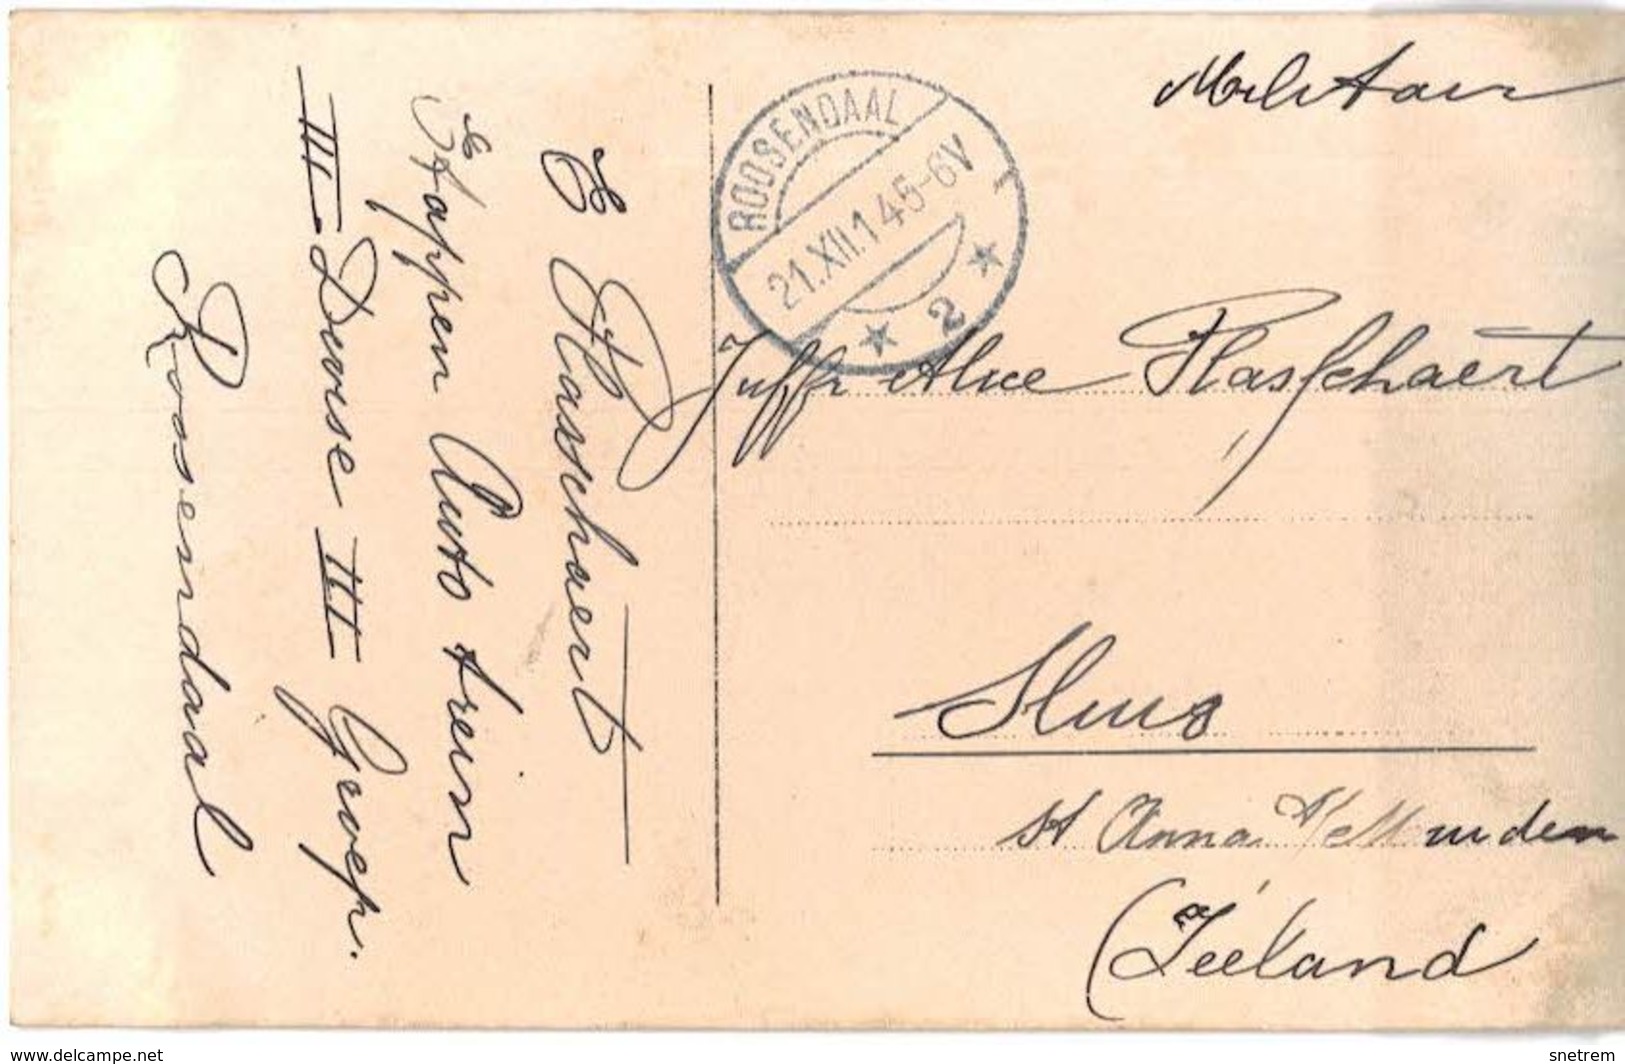 Militair
ROOSENDAAL
21.XII.14 5-6V
2
Juffr Alice Plasschaert
Sluis
St Anna ter Muiden
(Zeeland
E Plasschaert
Etappen Auto trein
III Divisie III Groep.
Roosendaal
www.delcampe.net
snetrem